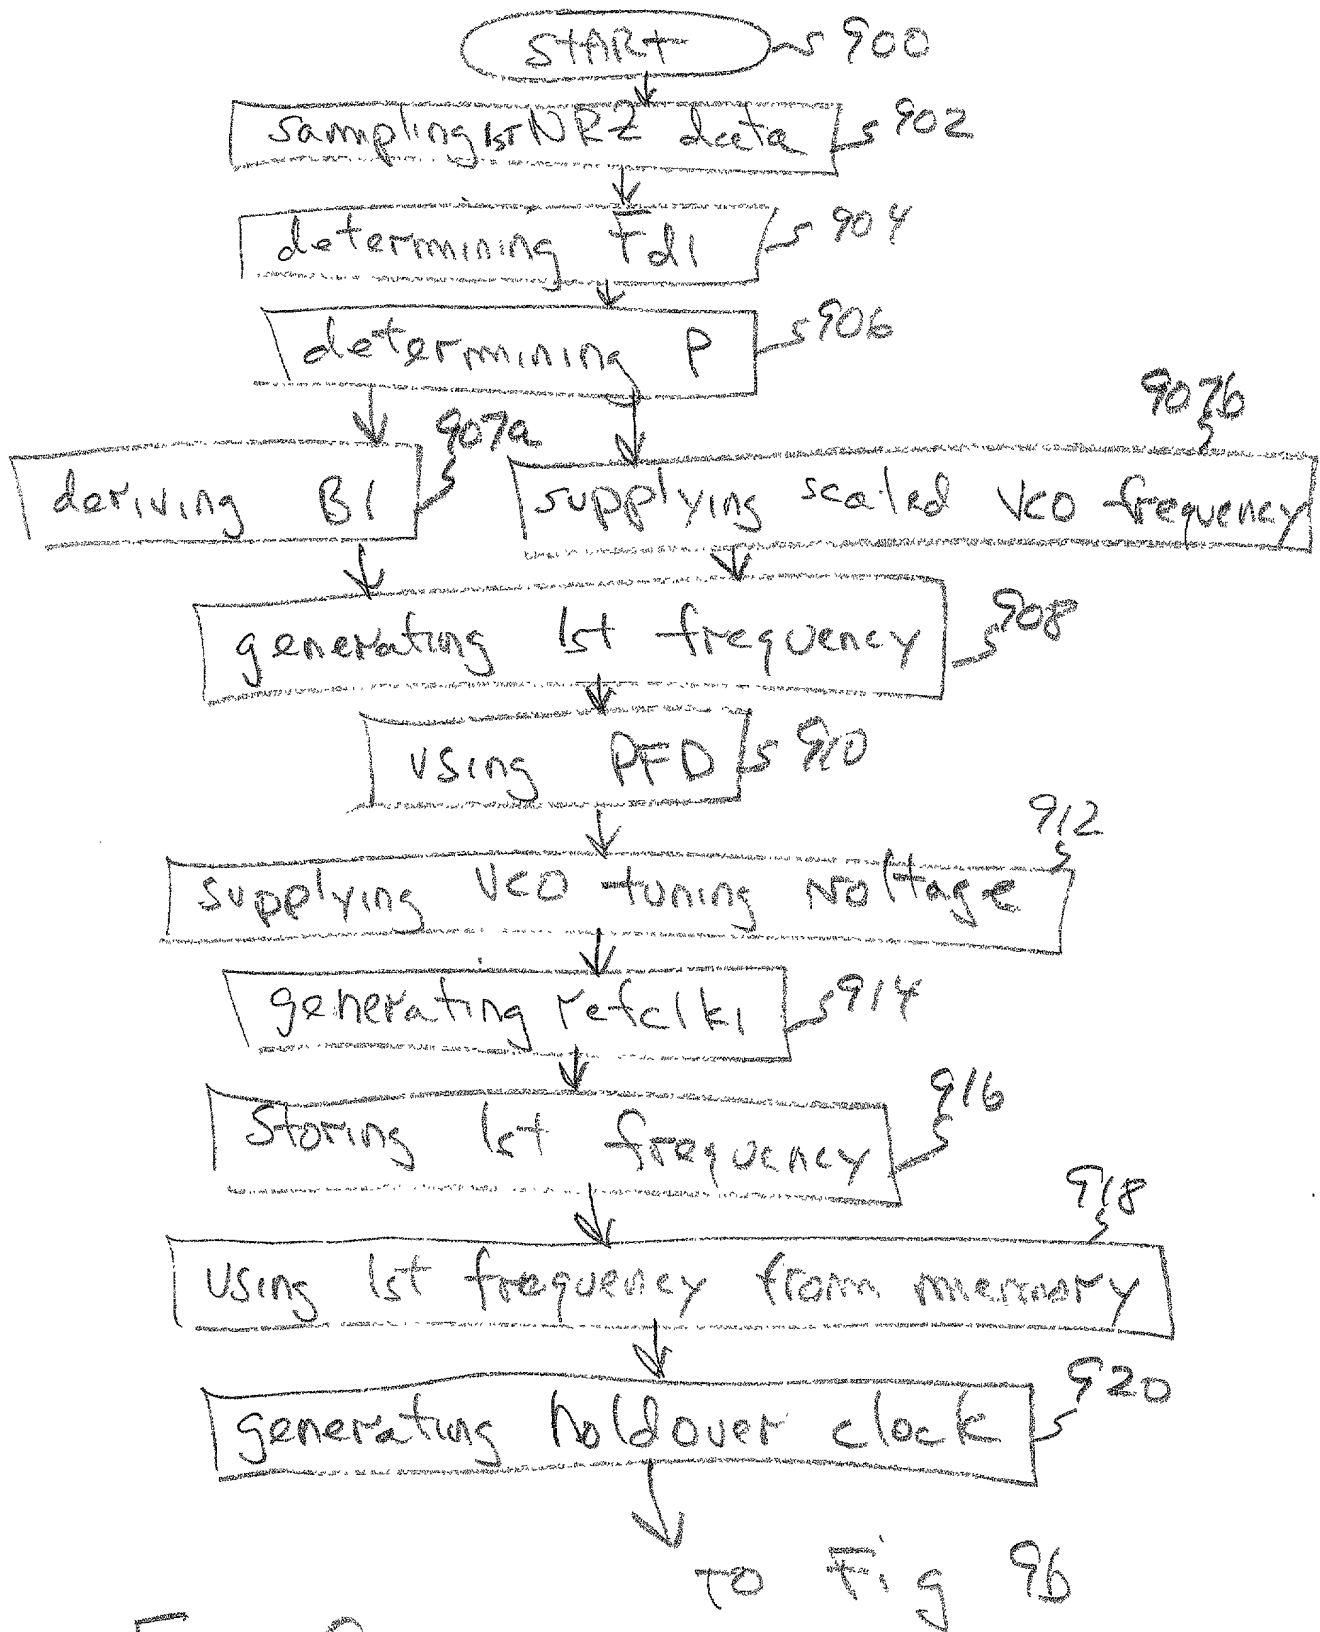 START 900
sampling 1ST NRZ data 902
determining Fd1 904
determining P 906
907a 907b
deriving B1 supplying scaled VCO frequency
generating 1st frequency 908
using PFD 910
912
supplying VCO tuning voltage
generating refclk1 914
916
Storing 1st frequency
918
Using 1st frequency from memory
920
generating holdover clock
TO Fig 9b